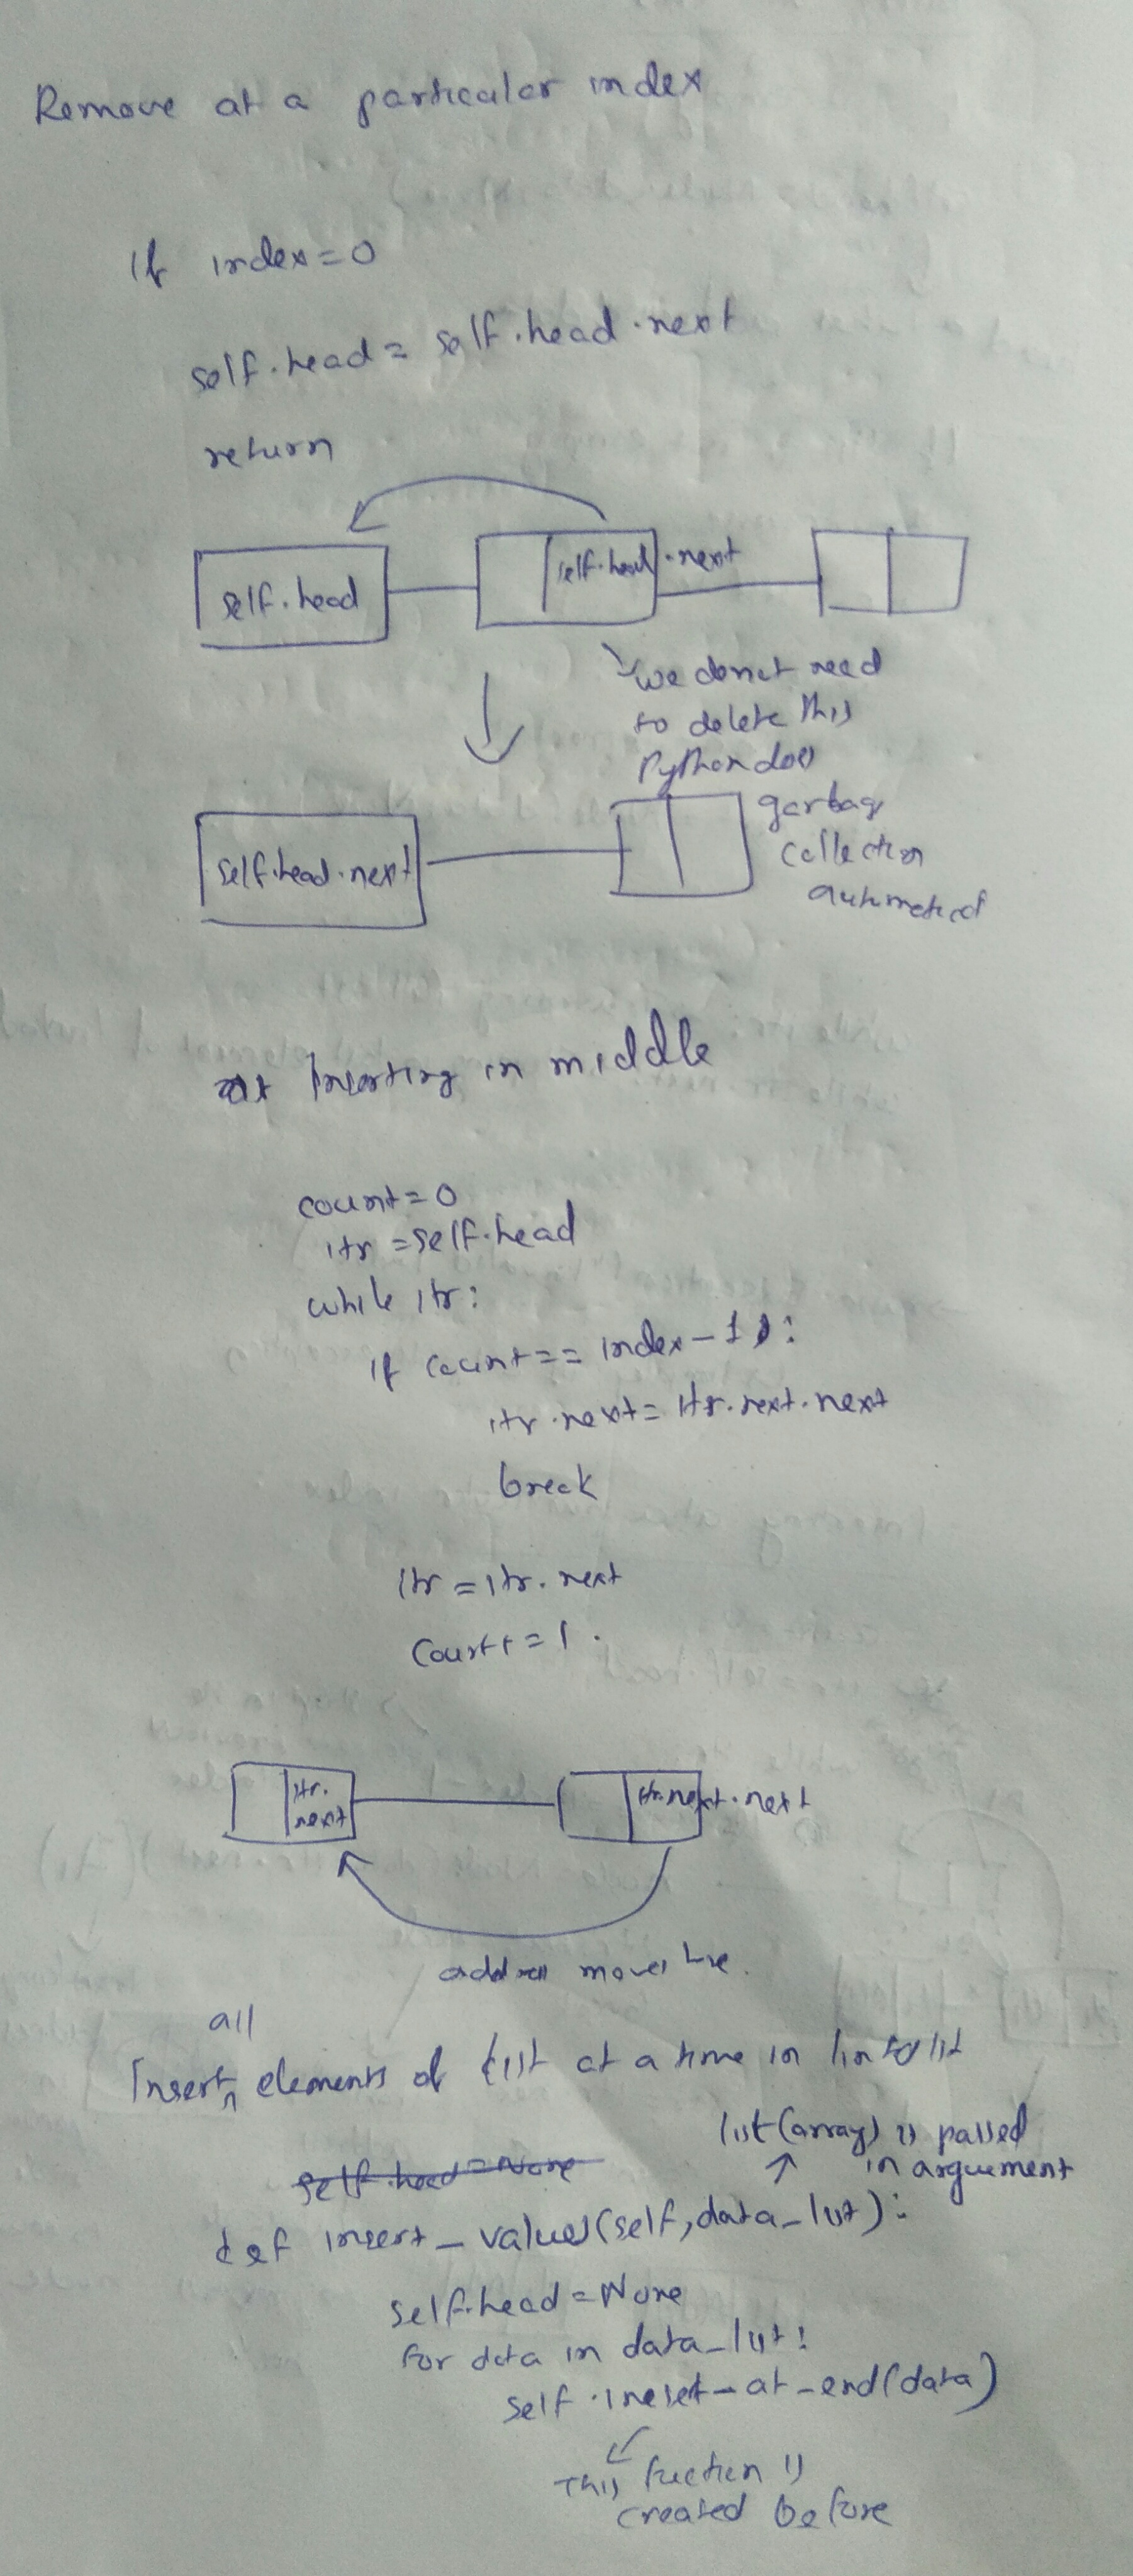 Remove at a particular index
If index=0
self.head = self.head.next
return
self.head
self.head.next
we donot need
to delete this
Python does
garbag
collection
self.head.next
Inserting in middle
count=0
itr =self.head
while itr:
if count== index-1:
itr.next= itr.next.next
break
itr = itr.next
Count+=1.
itr.
next
itr.next.next
address moves here.
all
Insert elements of list at a time in
list(array) is passed
in arguement
self.head=None
def insert_values(self,data_list):
self.head=None
for data in data_list:
self.insert_at_end(data)
This fuction is
created before